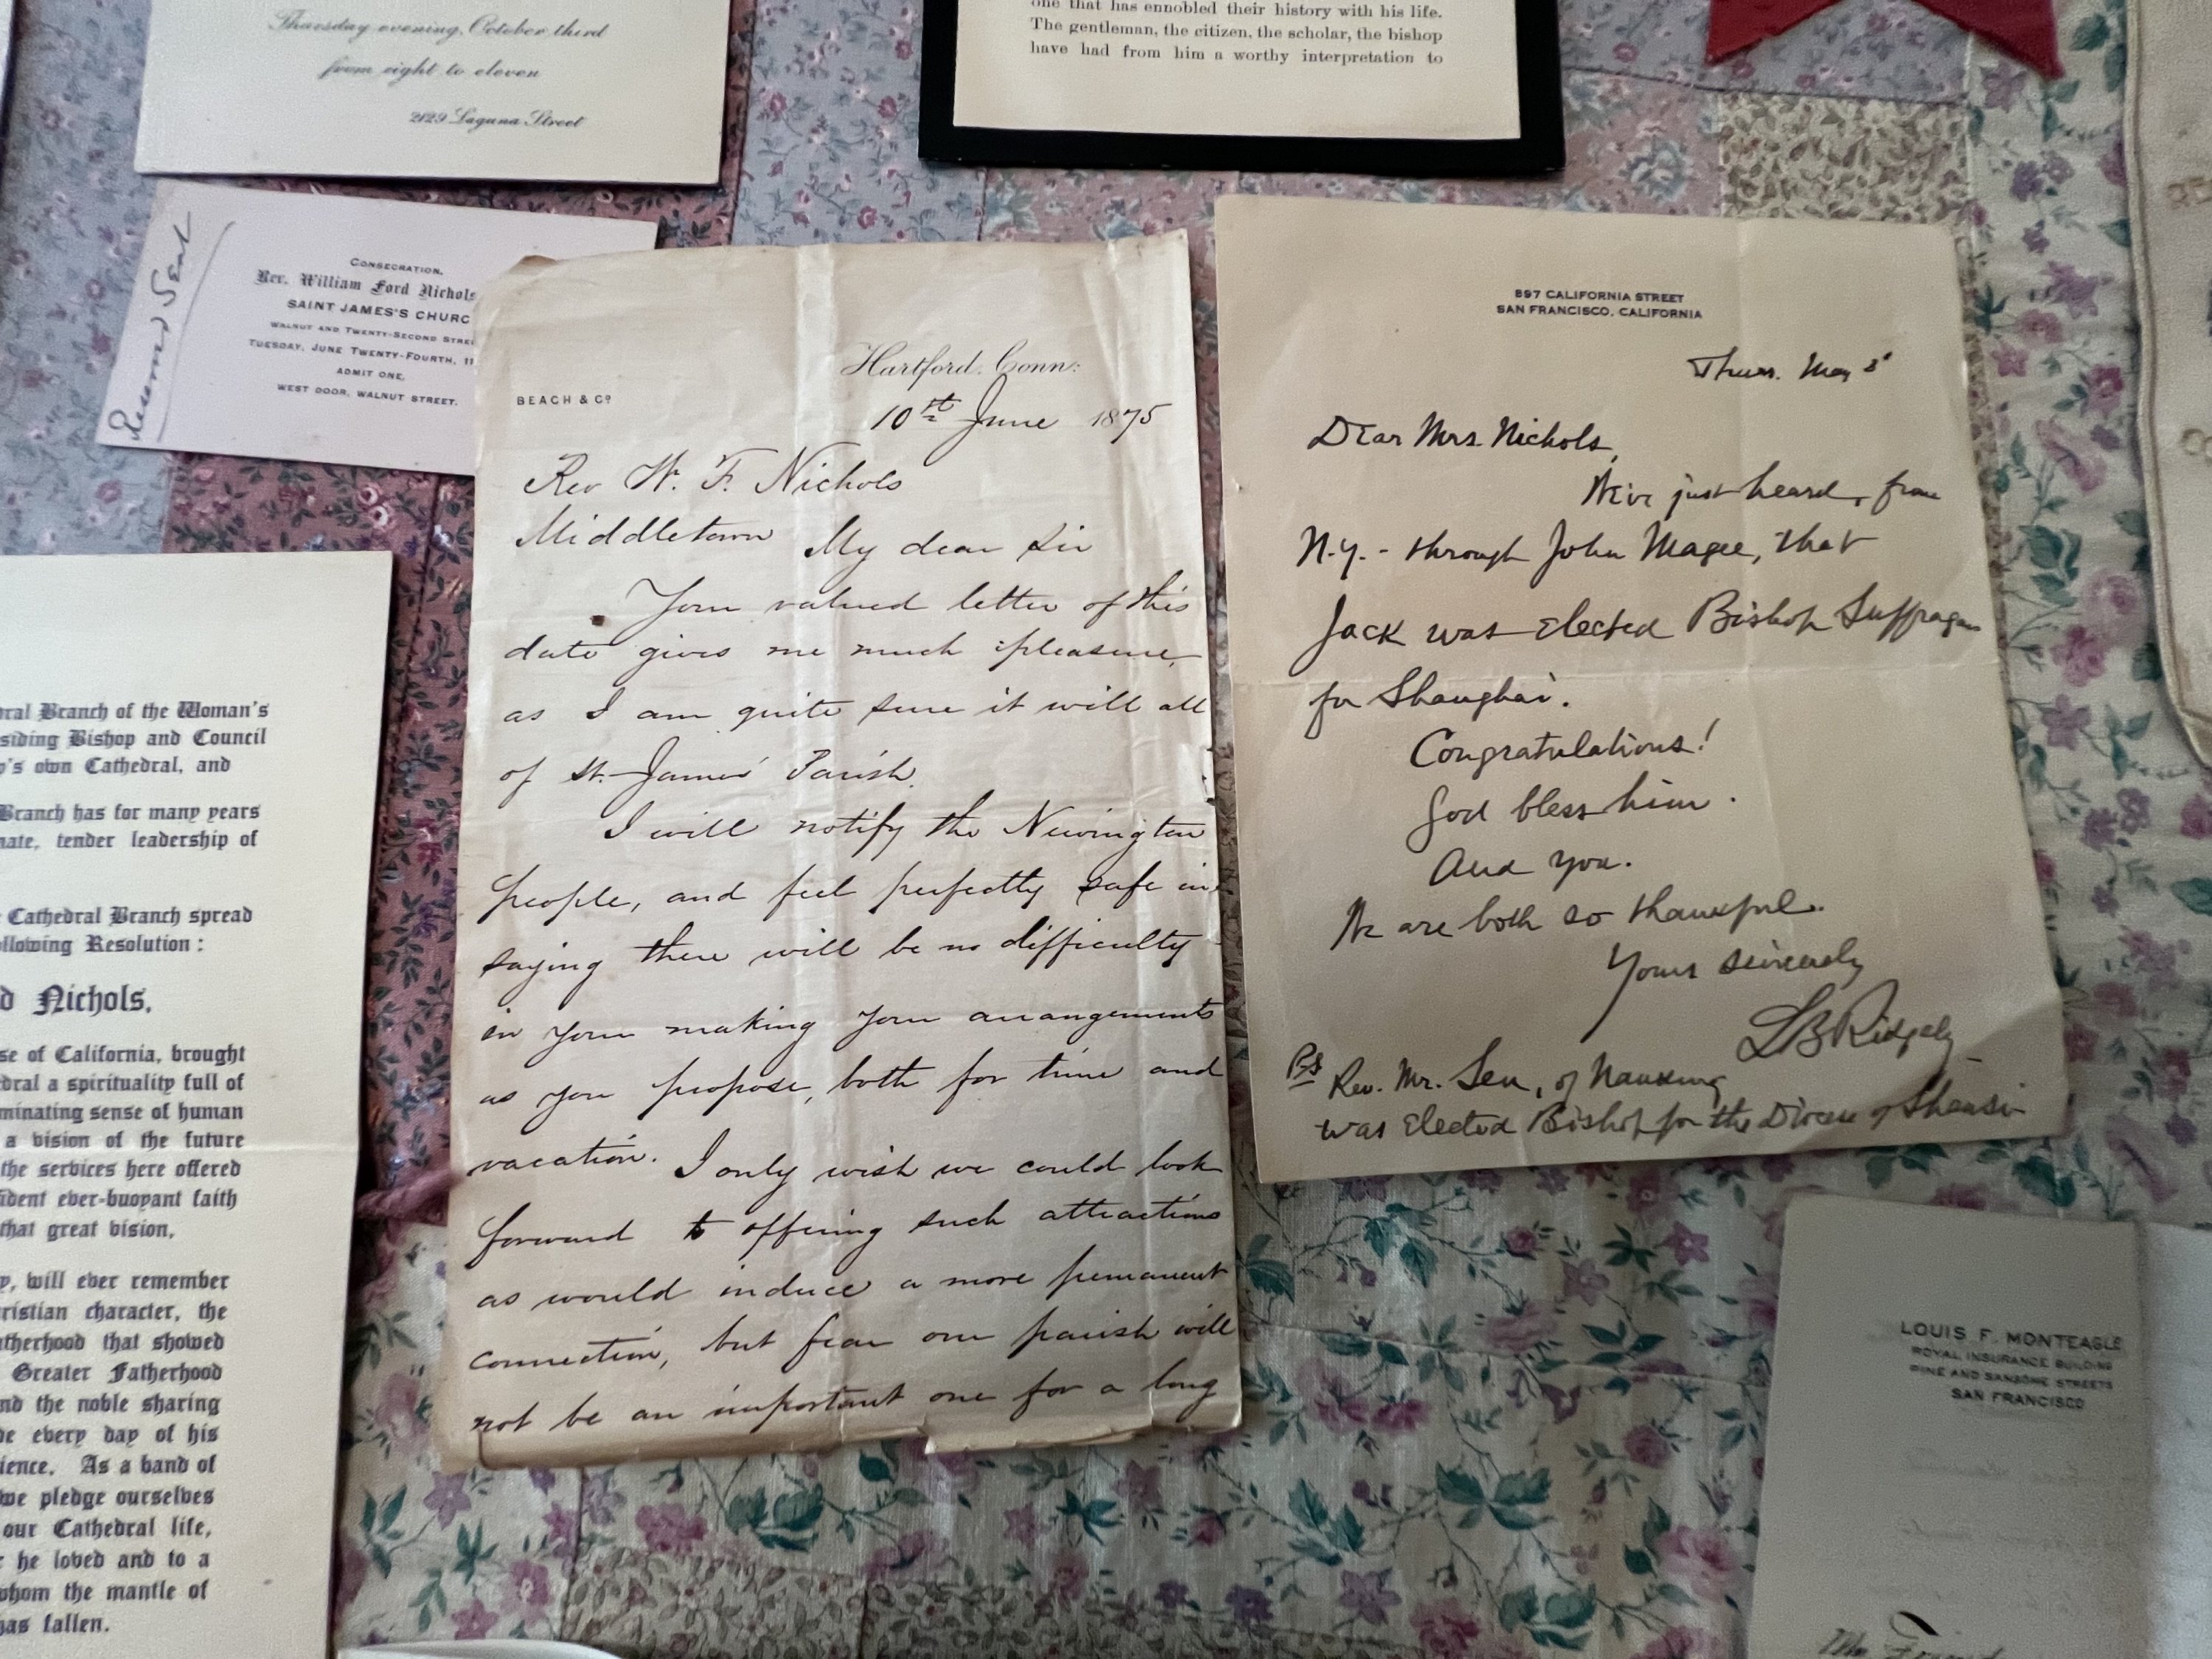 Thursday evening, October third
from eight to eleven
2129 Laguna Street
one that has ennobled their history with his life.
The gentleman, the citizen, the scholar, the bishop
have had from him a worthy interpretation to
Sent
CONSECRATION,
Rev. William Ford Nichols
SAINT JAMES'S CHURC
WALNUT AND TWENTY-SECOND STREE
TUESDAY, JUNE TWENTY-FOURTH, 11
ADMIT ONE,
WEST DOOR, WALNUT STREET.
BEACH & Co
Hartford, Conn:
10th June 1875
Rev W. F. Nichols
Middletown My dear Sir
Your valued letter of this
date gives me much pleasure,
as I am quite sure it will all
of St. James' Parish.
I will notify the Newington
people, and feel perfectly safe in
saying there will be no difficulty
in your making your arrangements
as you propose, both for time and
vacation. I only wish we could look
forward to offering such attractions
as would induce a more permanent
connection, but fear our parish will
not be an important one for a long
897 CALIFORNIA STREET
SAN FRANCISCO, CALIFORNIA
Thurs. May 3
Dear Mrs. Nichols,
We've just heard, from
N.Y. - through John Magee, that
Jack was elected Bishop Suffragan
for Shanghai.
Congratulations!
God bless him.
And you.
We are both so thankful.
Yours sincerely
LB Ridgely
PS Rev. Mr. Sen, of Nanking
was elected Bishop for the Diocese of Shensi
ral Branch of the Woman's
siding Bishop and Council
's own Cathedral, and
Branch has for many years
nate, tender leadership of
Cathedral Branch spread
llowing Resolution:
d Nichols,
se of California, brought
dral a spirituality full of
minating sense of human
a vision of the future
the services here offered
ident ever-buoyant faith
that great vision,
y, will ever remember
ristian character, the
atherhood that showed
Greater Fatherhood
nd the noble sharing
e every day of his
ience. As a band of
we pledge ourselves
our Cathedral life,
he loved and to a
whom the mantle of
has fallen.
LOUIS F. MONTEAGLE
ROYAL INSURANCE BUILDING
PINE AND SANSOME STREETS
SAN FRANCISCO